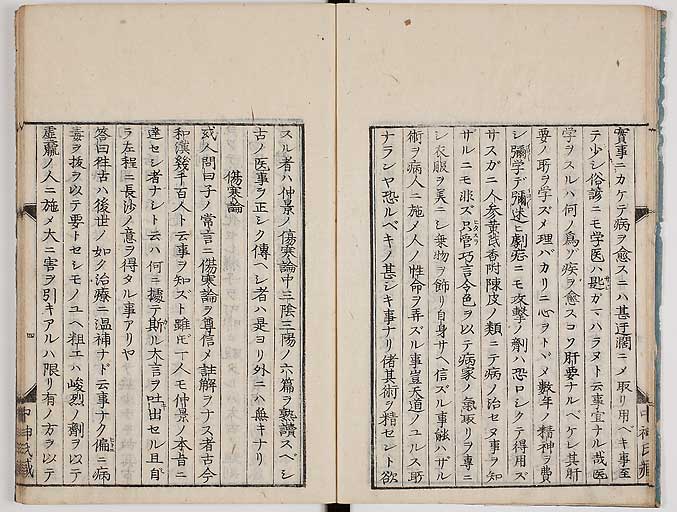 實事ニカケテ病ヲ愈スニハ甚迂濶ニメ取リ用ベキ事至
テ少シ俗諺ニモ学医ハ匙ガマハラヌト云事宜ナル哉医
学ヲスルハ何ノ爲ゾ疾ヲ愈スコソ肝要ナルベケレ其肝
要ノ所ヲ学ズメ理バカリニ心ヲトドメ数年ノ精神ヲ費
シ彌学デ彌迷ヒ劇症ニモ攻撃ノ劑ハ恐ロシクテ得用ズ
サスガニ人参黄芪香附陳皮ノ類ニテ病ノ治セヌ事ヲ知
サルニモ非ズ只管巧言令色ヲ以テ病家ノ氣取リヲ専ニ
シ衣服ヲ美ニシ乗物ヲ飾リ自身サヘ信ズル事能ハザル
術ヲ病人ニ施メ人ノ性命ヲ弄ズル事豈天道ノユルス所
ナランヤ恐ルベキノ甚シキ事ナリ偖其術ヲ精セント欲
中神氏藏
スル者ハ仲景ノ傷寒論中三陰三陽ノ六篇ヲ熟讀スベシ
古ノ医事ヲ正シク傳ヘシ者ハ是ヨリ外ニハ無キナリ
傷寒論
或人問曰子ノ常言ニ傷寒論ヲ尊信メ註解ヲナス者古今
和漢幾千百人ト云事ヲ知ズト雖モ一人モ仲景ノ本旨ニ
達セシ者ナシト云ハ何ニ據テ斯ル大言ヲ吐出セル且自
ラ左程ニ長沙ノ意ヲ得タル事アリヤ
答曰往古ハ後世ノ如ク治療ニ温補ナド云事ナク偏ニ病
毒ヲ抜ヲ以テ要トセシモノユヘ粗工ハ峻烈ノ劑ヲ以テ
虚羸ノ人ニ施メ大ニ害ヲ引キアルハ限リ有ノ方ヲ以テ
四
中神氏藏